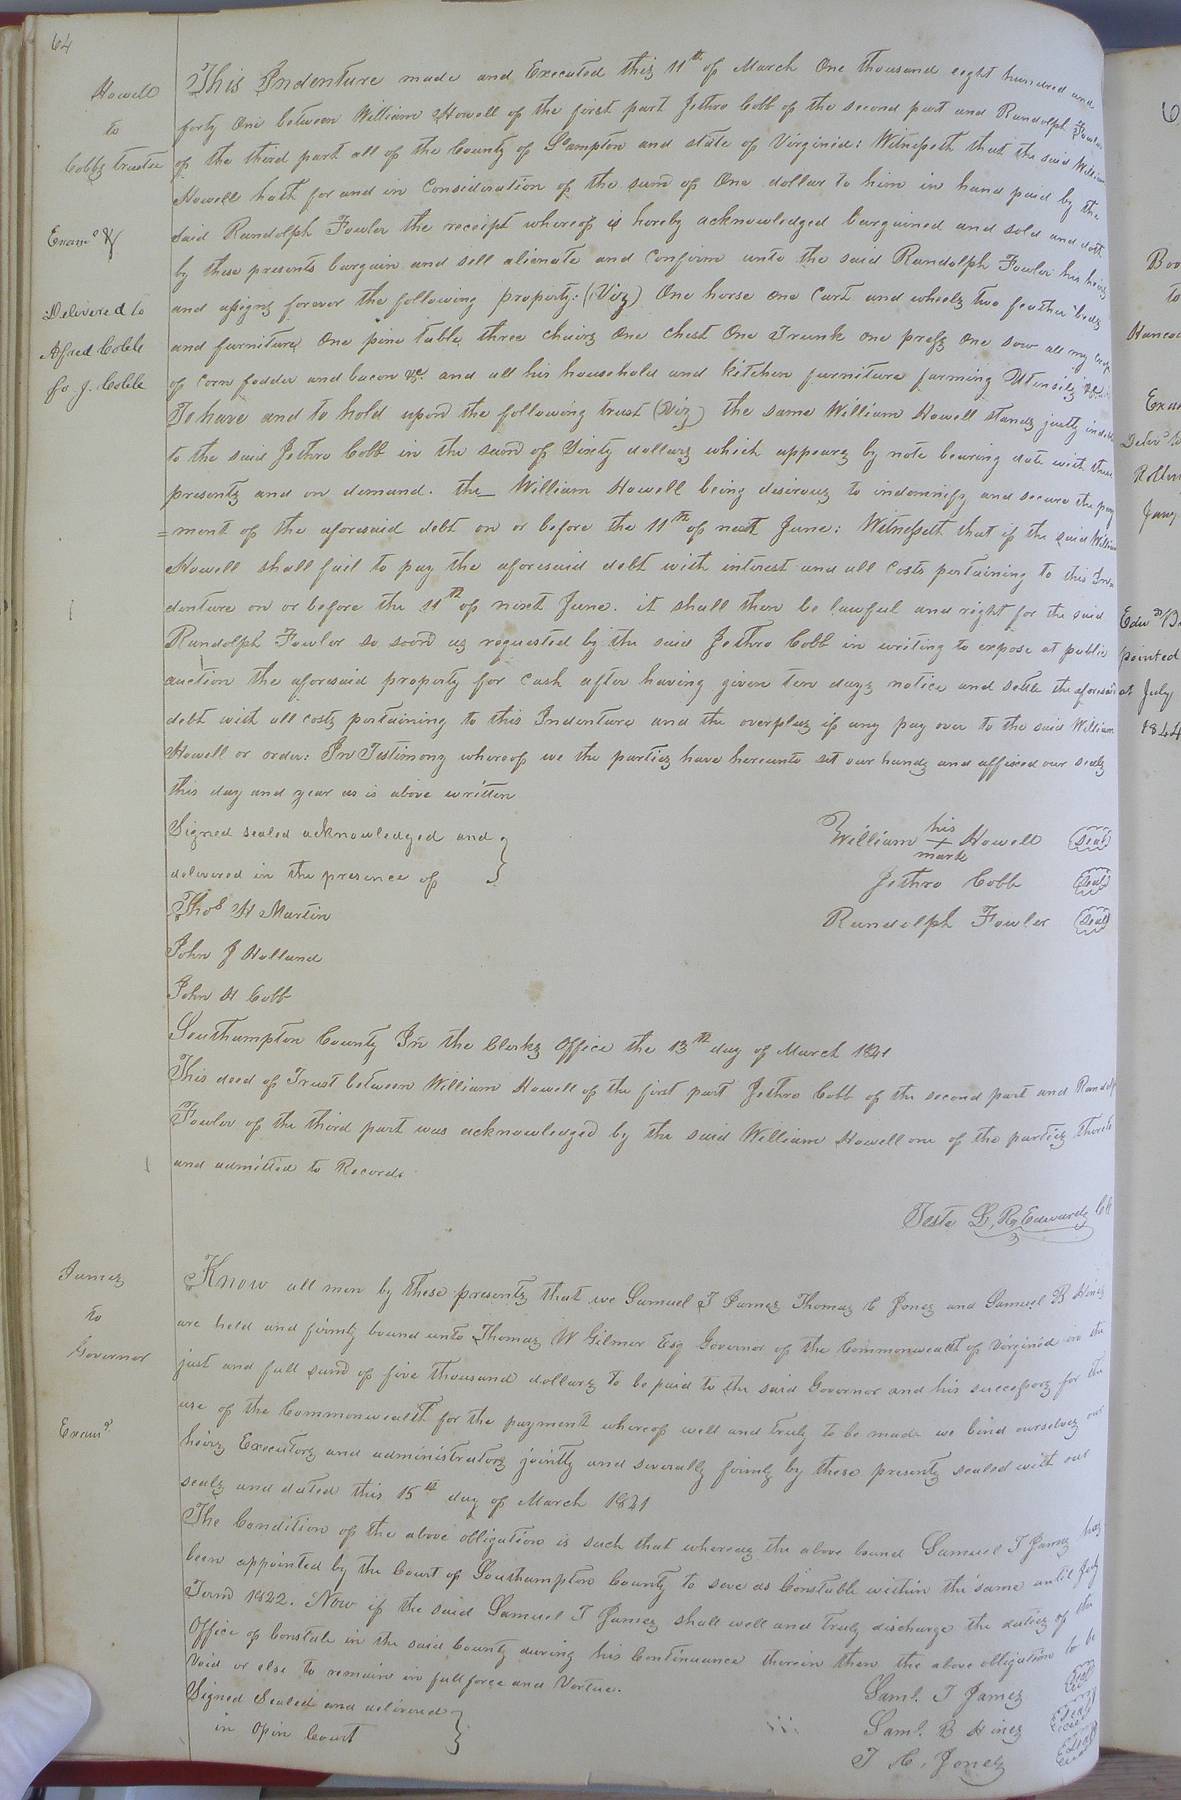 64
Howell
to
Cobbs trustee
Exam.d
Delivered to
Alfred Cobb
for J. Cobb
This Indenture made and Executed this 11th of March One thousand eight hundred and
forty One between William Howell of the first part Jethro Cobb of the second part and Randolph Fowler
of the third part all of the County of S.ampton and state of Virginia: Witnesseth that the said William
Howell hath for and in Consideration of the sum of One dollar to him in hand paid by the
said Randolph Fowler the receipt whereof is hereby acknowledged bargained and sold and doth
by these presents bargain and sell alienate and Confirm unto the said Randolph Fowler his heirs
and assigns forever the following property: (Viz) One horse one Cart and wheels two feather beds
and furniture One pine table three chairs One chest One Trunk one press One sow all my crop
of Corn fodder and bacon &c. and all his household and kitchen furniture farming Utensils
To have and to hold upon the following trust (Viz) the same William Howell stands justly indebted
to the said Jethro Cobb in the sum of Sixty dollars which appears by note bearing date with these
presents and on demand. the William Howell being desirous to indemnify and secure the pay
=ment of the aforesaid debt on or before the 11th of next June: Witnesseth that if the said William
Howell shall fail to pay the aforesaid debt with interest and all Costs pertaining to this In=
denture on or before the 11th of next June. it shall then be lawful and right for the said
Randolph Fowler so soon as requested by the said Jethro Cobb in writing to expose at public
auction the aforesaid property for Cash after having given ten days notice and settle the aforesaid
debt with all costs pertaining to this Indenture and the overplus if any pay over to the said William
Howell or order: In Testimony whereof we the parties have hereunto set our hands and affixed our seals
this day and year as is above written
Signed sealed acknowledged and
delivered in the presence of
Thos H Martin
John J Holland
John H Cobb
William his Howell (seal)
X
mark
Jethro Cobb (seal)
Randolph Fowler (seal)
Southampton County In the Clerks Office the 13th day of March 1841
This deed of Trust between William Howell of the first part Jethro Cobb of the second part and Randolph
Fowler of the third part was acknowledged by the said William Howell one of the parties thereto
and admitted to Record.
Teste L, R, Edwards Clk
James
to
Governor
Exam.d
Know all men by these presents that we Samuel T James Thomas C Jones and Samuel B Hines
are held and firmly bound unto Thomas W Gilmer Esq Governor of the Commonwealth of Virginia in the
just and full sum of five thousand dollars to be paid to the said Governor and his successors for the
use of the Commonwealth for the payment whereof well and truly to be made we bind ourselves our
heirs Executors and administrators jointly and severally firmly by these presents sealed with our
seals and dated this 15th day of March 1841
The Condition of the above obligation is such that whereas the above bound Samuel T James has
been appointed by the Court of Southampton County to serve as Constable within the same until July
Term 1842. Now if the said Samuel T James shall well and truly discharge the duties of the
Office of Constale in the said County during his Continuance therein then the above obligation to be
Void or else to remain in full force and Vertue.
Signed Sealed and delivered
in Open Court
Saml. T James (seal)
Saml. B Hines (seal)
T C, Jones (seal)
6
to
Hancoc
July
1844